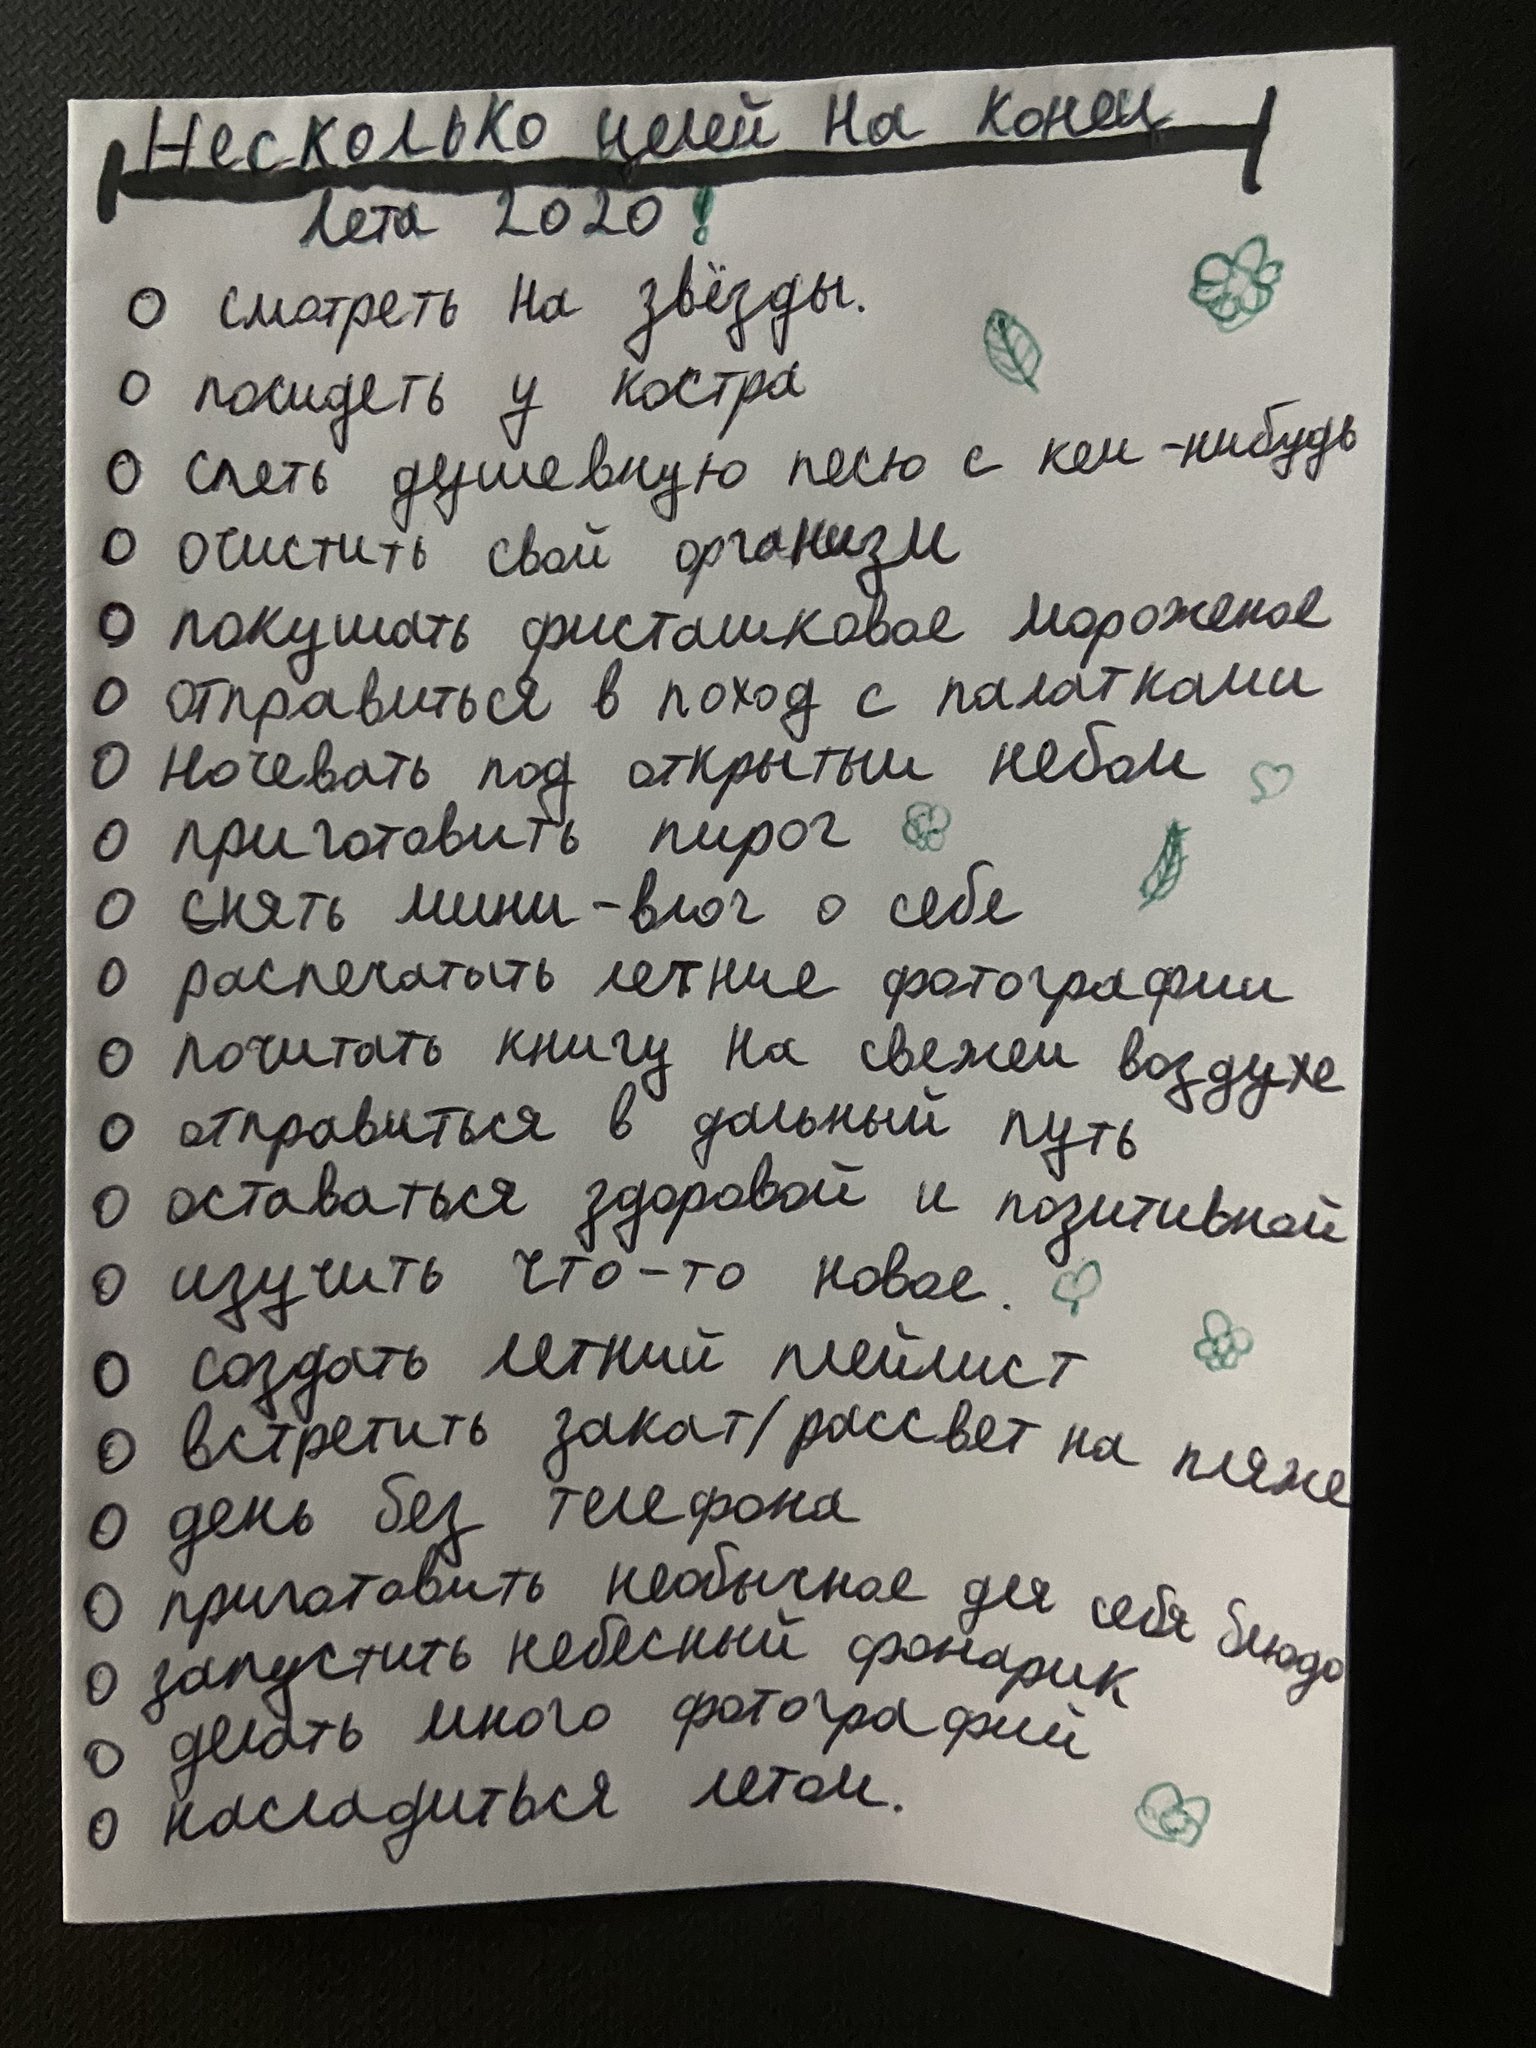 Несколько целей на конец
лета 2020!
О смотреть на звёзды.
О посидеть у костра
О спеть душевную песю с кем-нибудь
О очистить свой организм
О покушать фисташковое мороженое
О отправиться в поход с палатками
О ночевать под открытым небом
О приготовить пирог
О снять мини-влог о себе
О распечатыть летние фотографии
О почитать книгу на свежем воздухе
О отправиться в дальный путь
О оставаться здоровой и позитивной
О изучить что-то новое.
О создать летний плейлист
О встретить закат/рассвет на пляже
О день без телефона
О приготовить необычное для себя блюдо
О запустить небесный фонарик
О делать много фотографий
О насладиться летом.